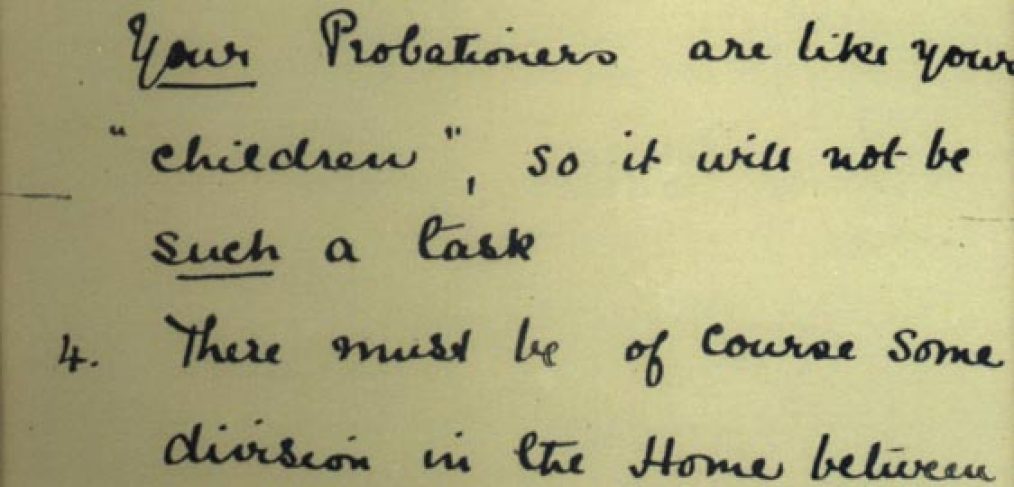 Your Probationers are like your
"children", so it will not be
such a task
4. There must be of course some
division in the Home between